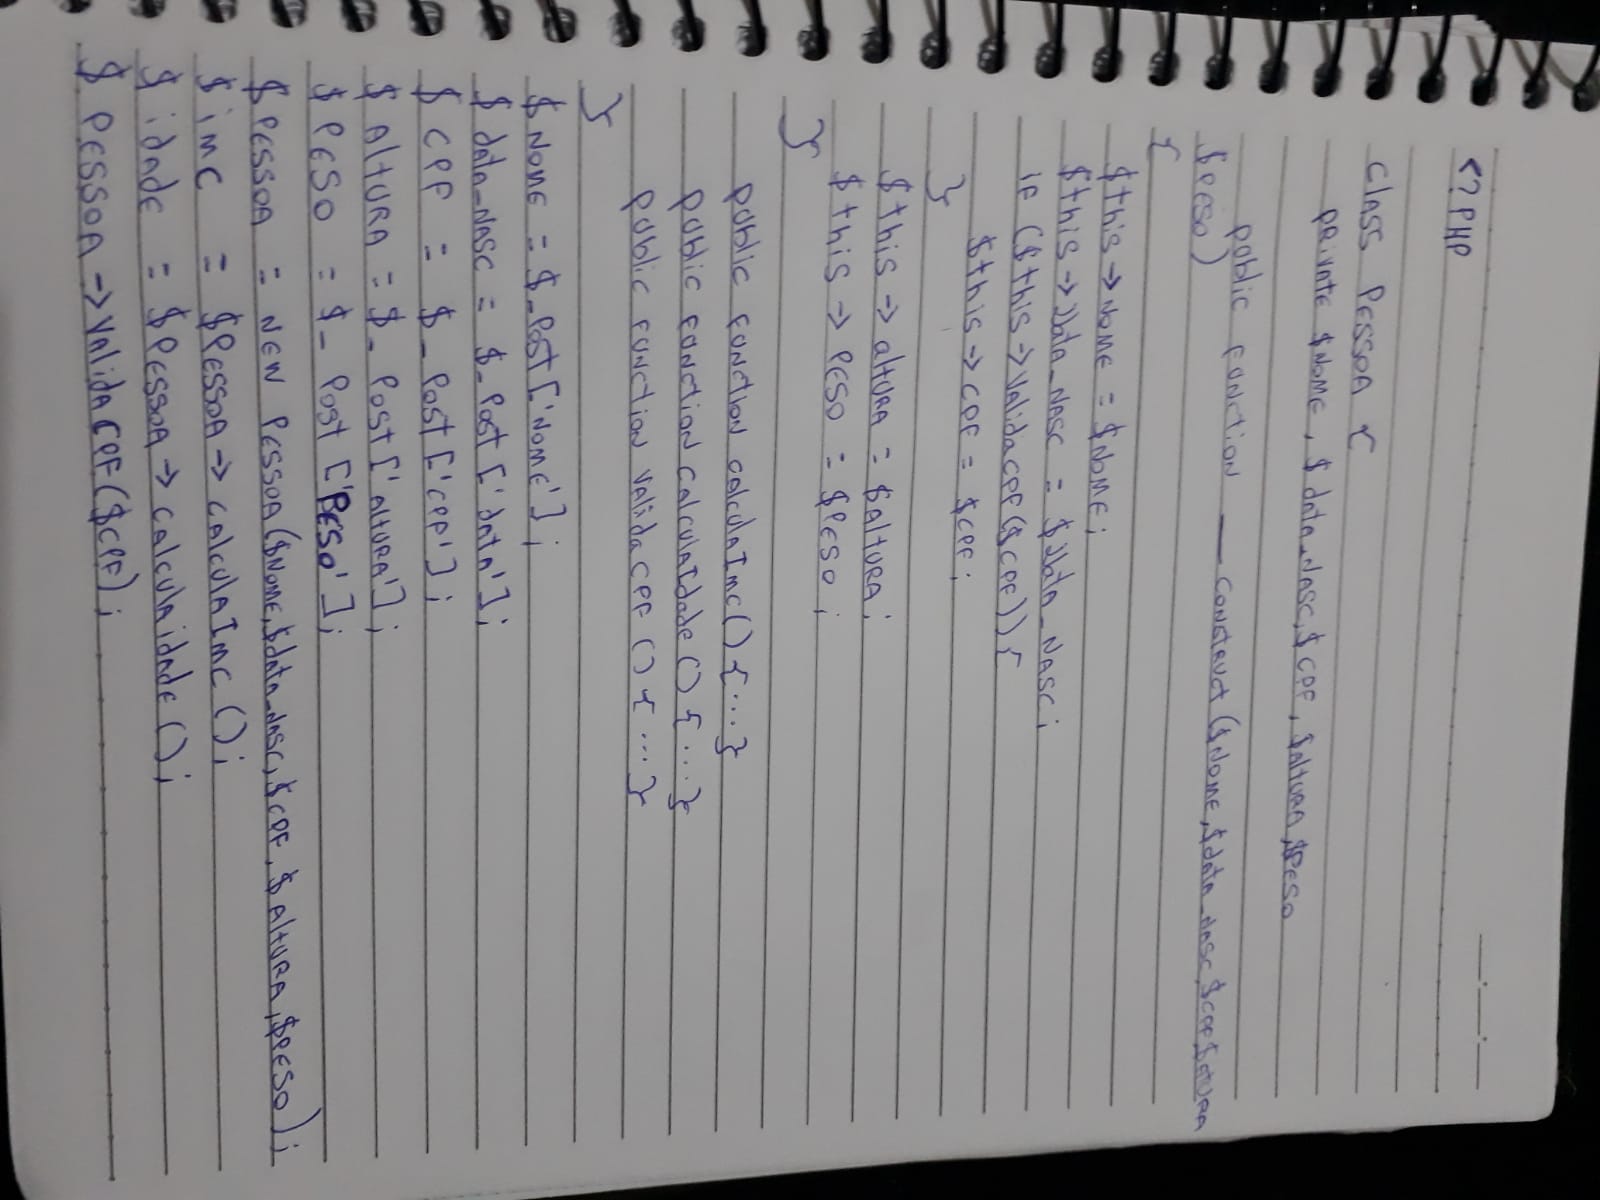 <?PHP
class PESSOA {
private $NOME, $data_NASC, $CPF, $ALTURA, $PESO
public function __ construct ($NOME, $data_NASC, $CPF $ATURA
$PESO)
{
$this -> NOME = $NOME;
$this -> Data_NASC = $Data_NASC;
if ($this -> ValidaCPF ($CPF)) {
$this -> CPF = $CPF;
}
$this -> altURA = $AltURA;
$this -> PESO = $PESO;
}
public function calculaImc() {...}
public function calculaIdade () {...}
public function validaCPF () {...}
}
$NOME = $_Post ['NOME'];
$data_NASC = $_Post ['data'];
$CPF = $_Post ['CPF'];
$AltURA = $_Post ['AltURA'];
$PESO = $_Post ['PESO'];
$PESSOA = NEW PESSOA ($NOME, $data_NASC, $CPF, $AltURA, $PESO);
$imc = $PESSOA -> calculaImc ();
$idade = $PESSOA -> calculaidade ();
$PESSOA -> ValidaCPF ($CPF);